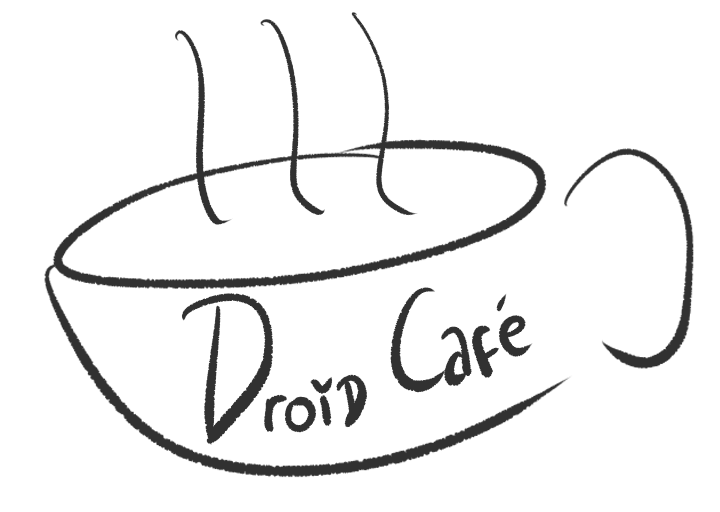 Droid Café